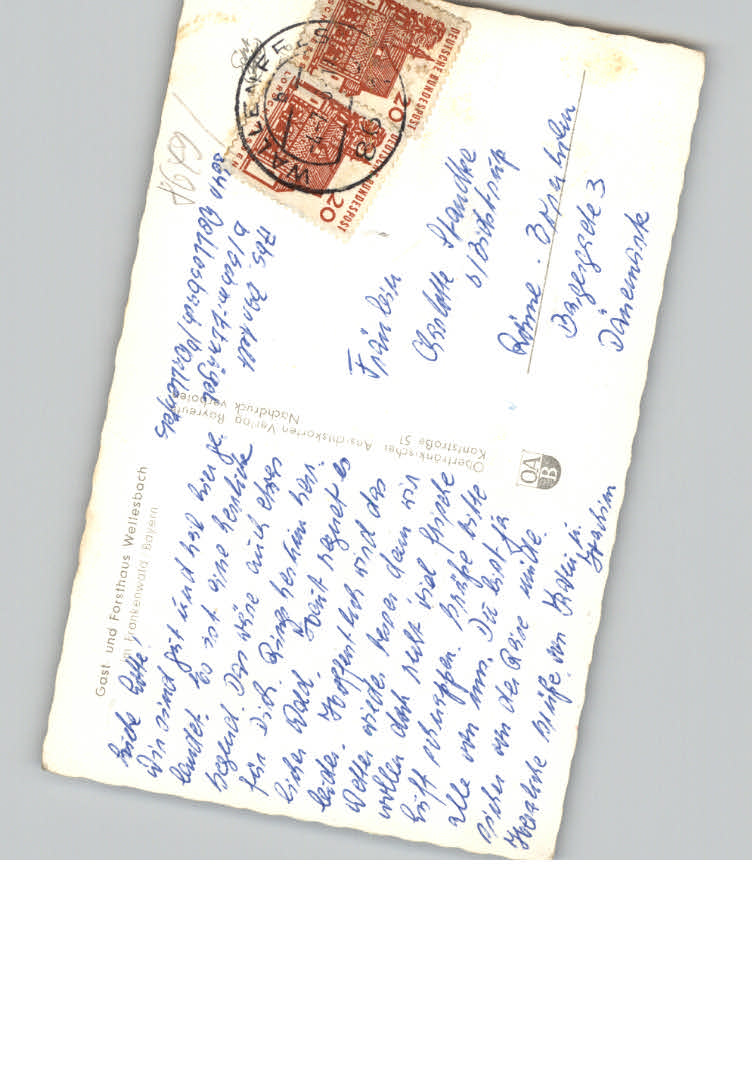 Gast- und Forsthaus Wellesbach
im Frankenwald Bayern
Liebe Lotte!
Wir sind gut und heil hier ge-
landet. Es ist eine herrliche
Gegend. Das wäre auch etwas
für Dich. Rings herum herr-
licher Wald. Heut regnet es
leider. Hoffentlich wird das
Wetter wieder besser denn wir
wollen doch recht viel frische
Luft schnappen. Grüße bitte
alle von uns. Du bist ja
sicher von der Reise müde.
Herzliche Grüße von Karin u.
Joachim
Oberfränkischer Ansichtskarten Verlag Bayreuth
Kantstraße 51
Nachdruck verboten
OAB
Fräulein
Charlotte Standke
Rønne - Bornholm
Bagergade 3
Dänemark
WALLENFELS
DEUTSCHE BUNDESPOST
20
LORSCH
DEUTSCHE BUNDESPOST
20